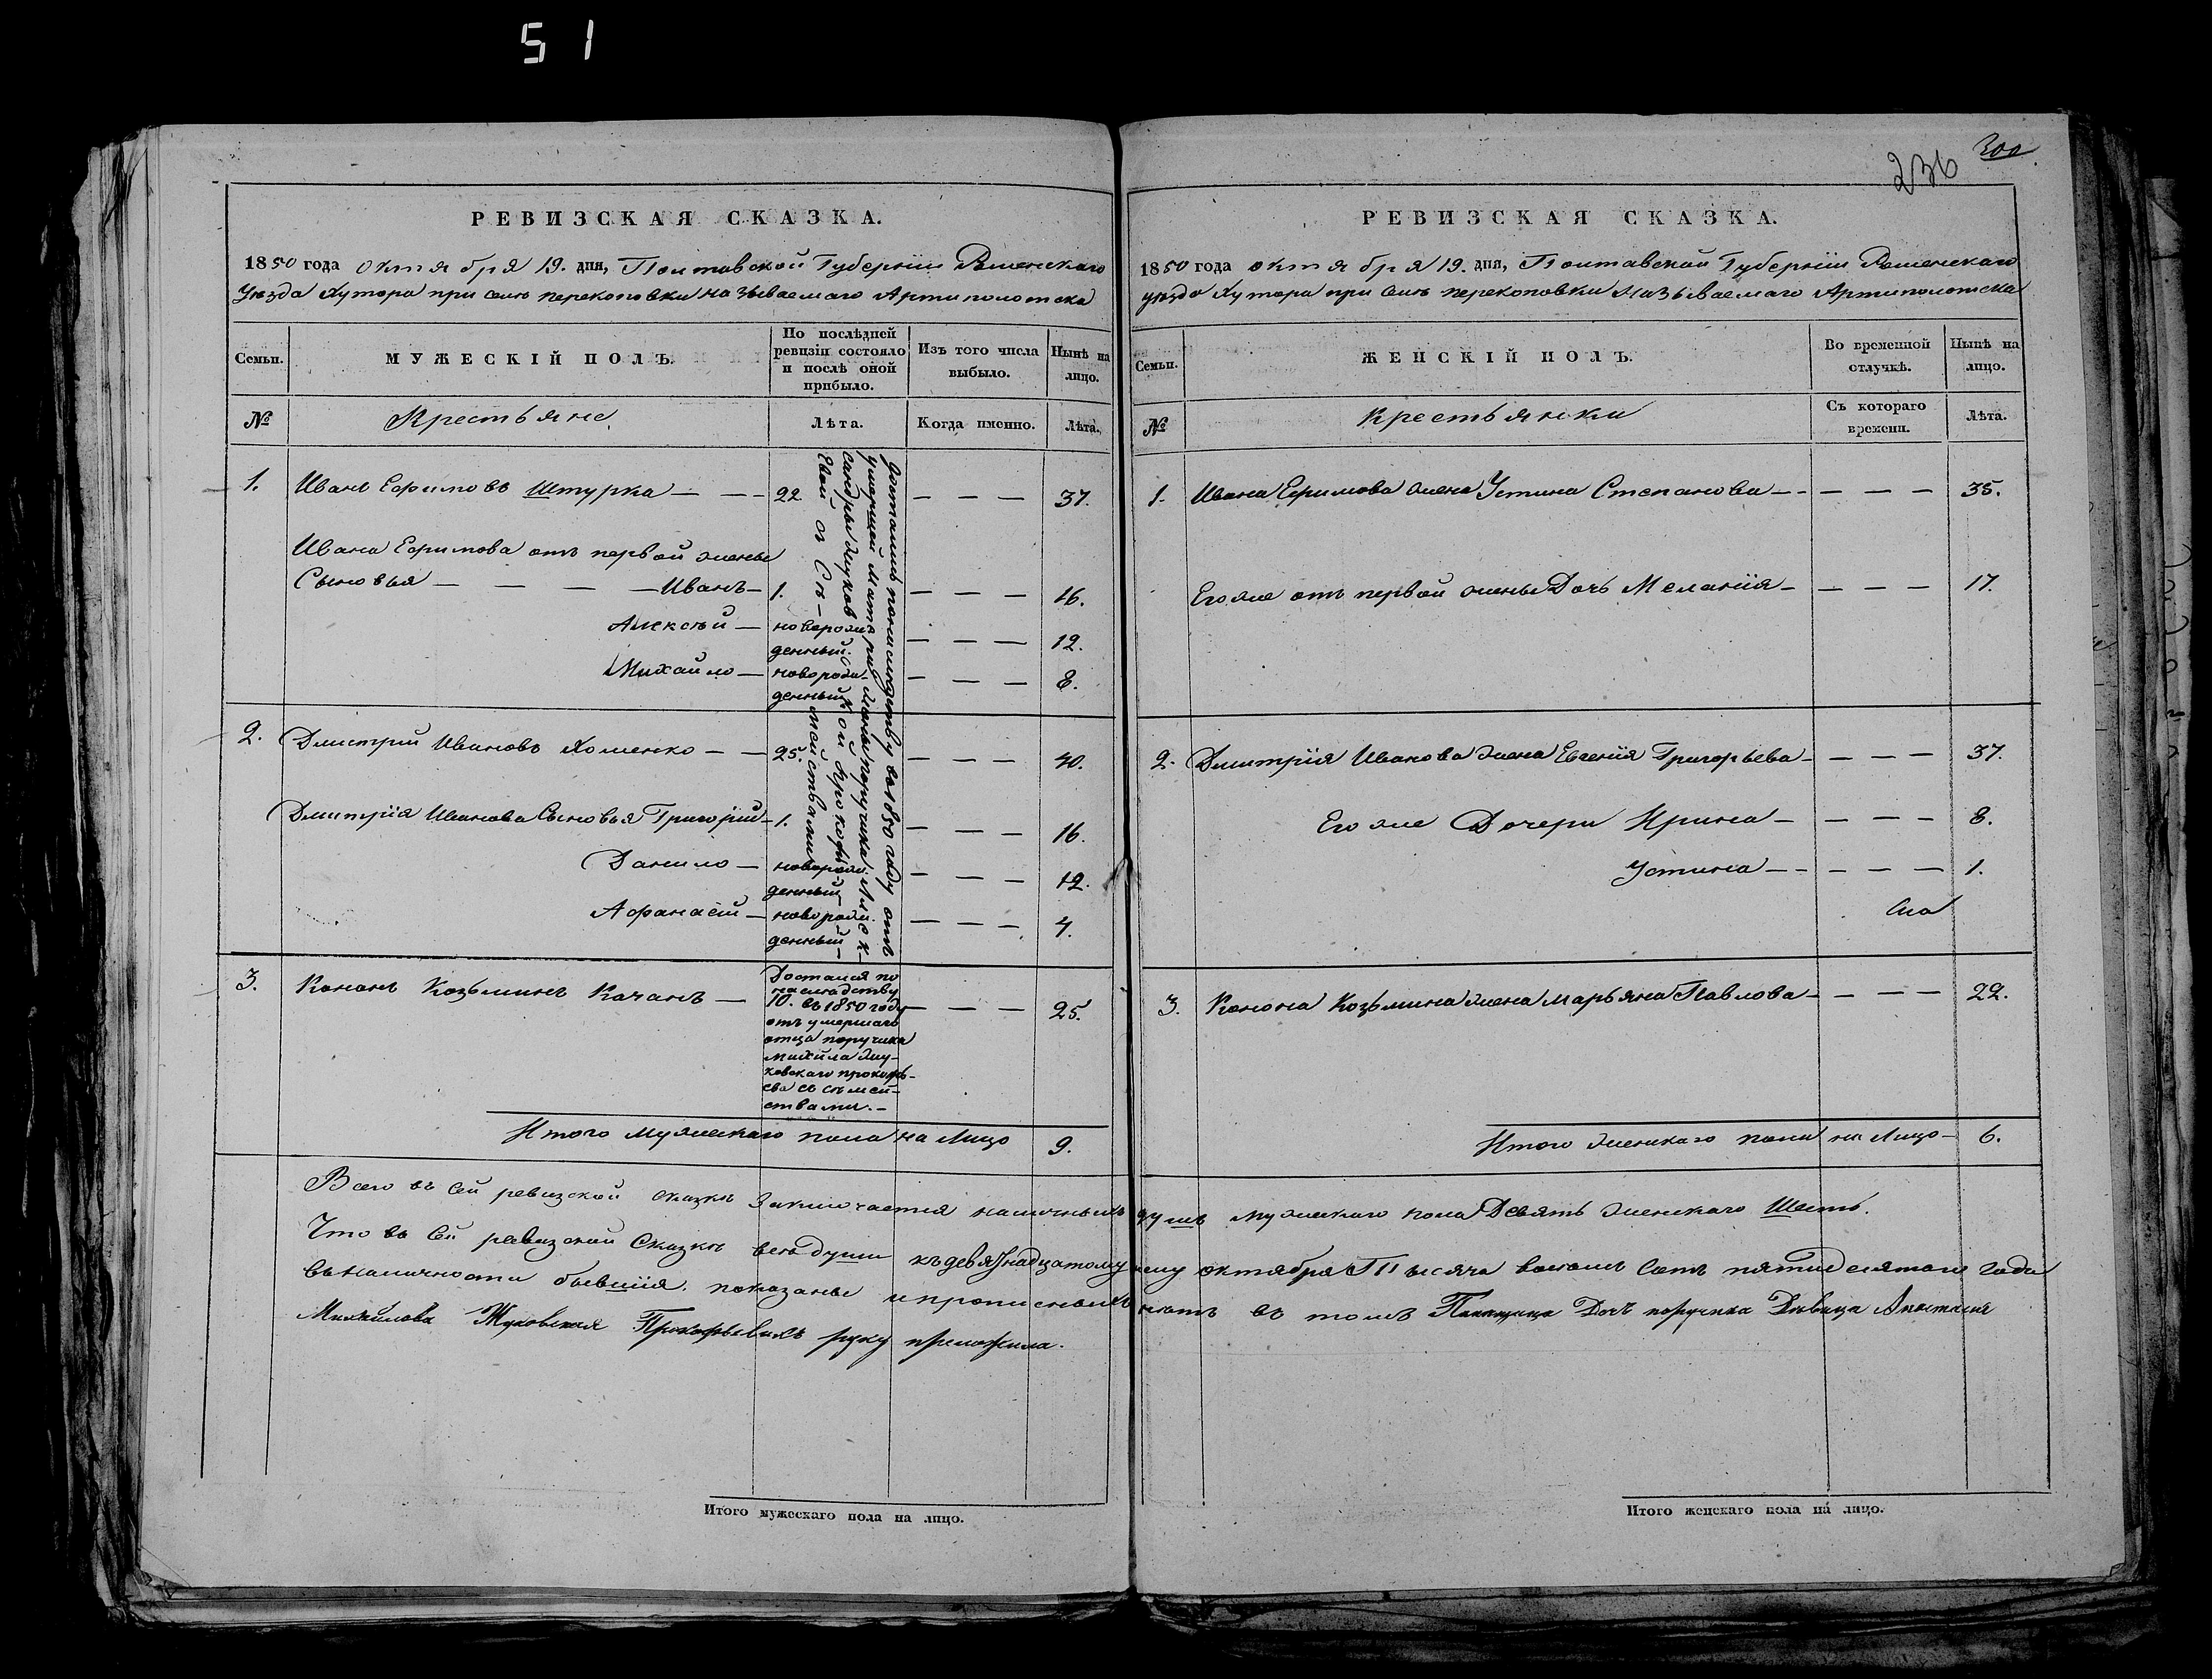 51
236
300
РЕВИЗСКАЯ СКАЗКА.
1850 года октября 19. дня, Полтавской Губерніи Роменскаго
Уѣзда Хутора при селѣ перекоповки называемаго Артиполотска
Семьи.
МУЖЕСКІЙ ПОЛЪ.
По послѣдней ревизіи состояло и послѣ оной прибыло.
Изъ того числа выбыло.
Нынѣ на лицо.
№
Крестьяне.
Лѣта.
Когда именно.
Лѣта.
1. Иванъ Ефимовъ Штурка — — — 22 — — — 37.
Ивана Ефимова отъ первой жены
Сыновья — — — — Иванъ — 1. — — — 16.
Алексѣй — новорожденный. — — — 12.
Михайло — новорожденный — — — 8.
2. Дмитрій Ивановъ Хоменко — — 25. — — — 40.
Дмитрія Иванова Сыновья Григорій — 1. — — — 16.
Данило — новорожденный — — — — 12.
Афанасій — новорожденный — — — — 4.
достались по наслѣдству въ 1850 году отъ
умершей матери жены поручика Алек-
сандры Жуковской Прокофь-
евой съ Сѣ-мействами
3. Кононъ Козьминъ Качанъ — 10. — — — 25.
Достался по
наслѣдству
въ 1850 году
отъ умершаго
отца поручика
михайла Жу-
ковскаго прокофь-
ева съ сѣмей-
ствами. —
Итого мужескаго пола на лицо 9.
РЕВИЗСКАЯ СКАЗКА.
1850 года октября 19. дня, Полтавской Губерніи Роменскаго
уѣзда Хутора при селѣ перекоповки называемаго Артиполотска
Семьи.
ЖЕНСКІЙ ПОЛЪ.
Во временной отлучкѣ.
Нынѣ на лицо.
№
Крестьянки
Съ котораго времени.
Лѣта.
1. Ивана Ефимова жена Устина Степанова — — — — 35.
Его же отъ первой жены Дочь Меланія — — — — 17.
2. Дмитрія Иванова жена Евгенія Григорьева — — — — 37.
Его же Дочери Ирина — — — — 8.
Устина — — — — — 1.
3. Конона Козьмина жена марьяна Павлова — — — — 22.
Итого женскаго пола на лицо — 6.
Всего въ сей ревизской сказкѣ заключается наличныхъ душъ мужескаго пола Девять женскаго Шесть.
Что въ сей ревизской Сказкѣ всѣ души къ девятнадцатому октября Тысяча восемь сотъ пятидесятаго года
въ наличности бывшія. показаны и прописныхъ нѣтъ въ томъ Помѣщица Дочь поручика Дѣвица Анастасія
Михайлова Жуковская Прокофьевихъ руку приложила.
Итого мужескаго пола на лицо.
Итого женскаго пола на лицо.